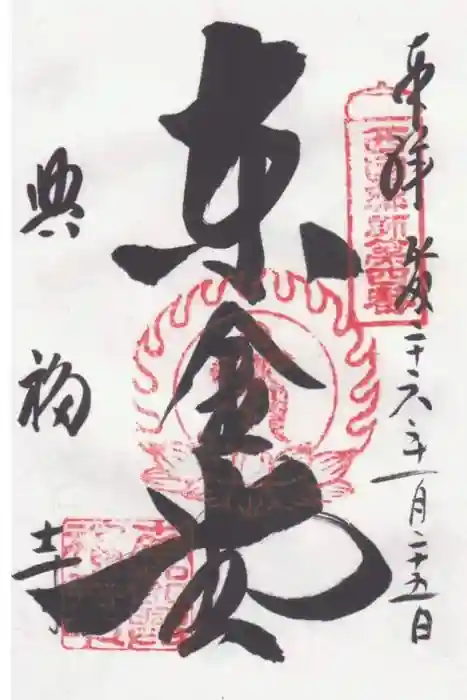 奉拝 平成二十六年一月二十五日
西国薬師第四番
東金堂
興福寺